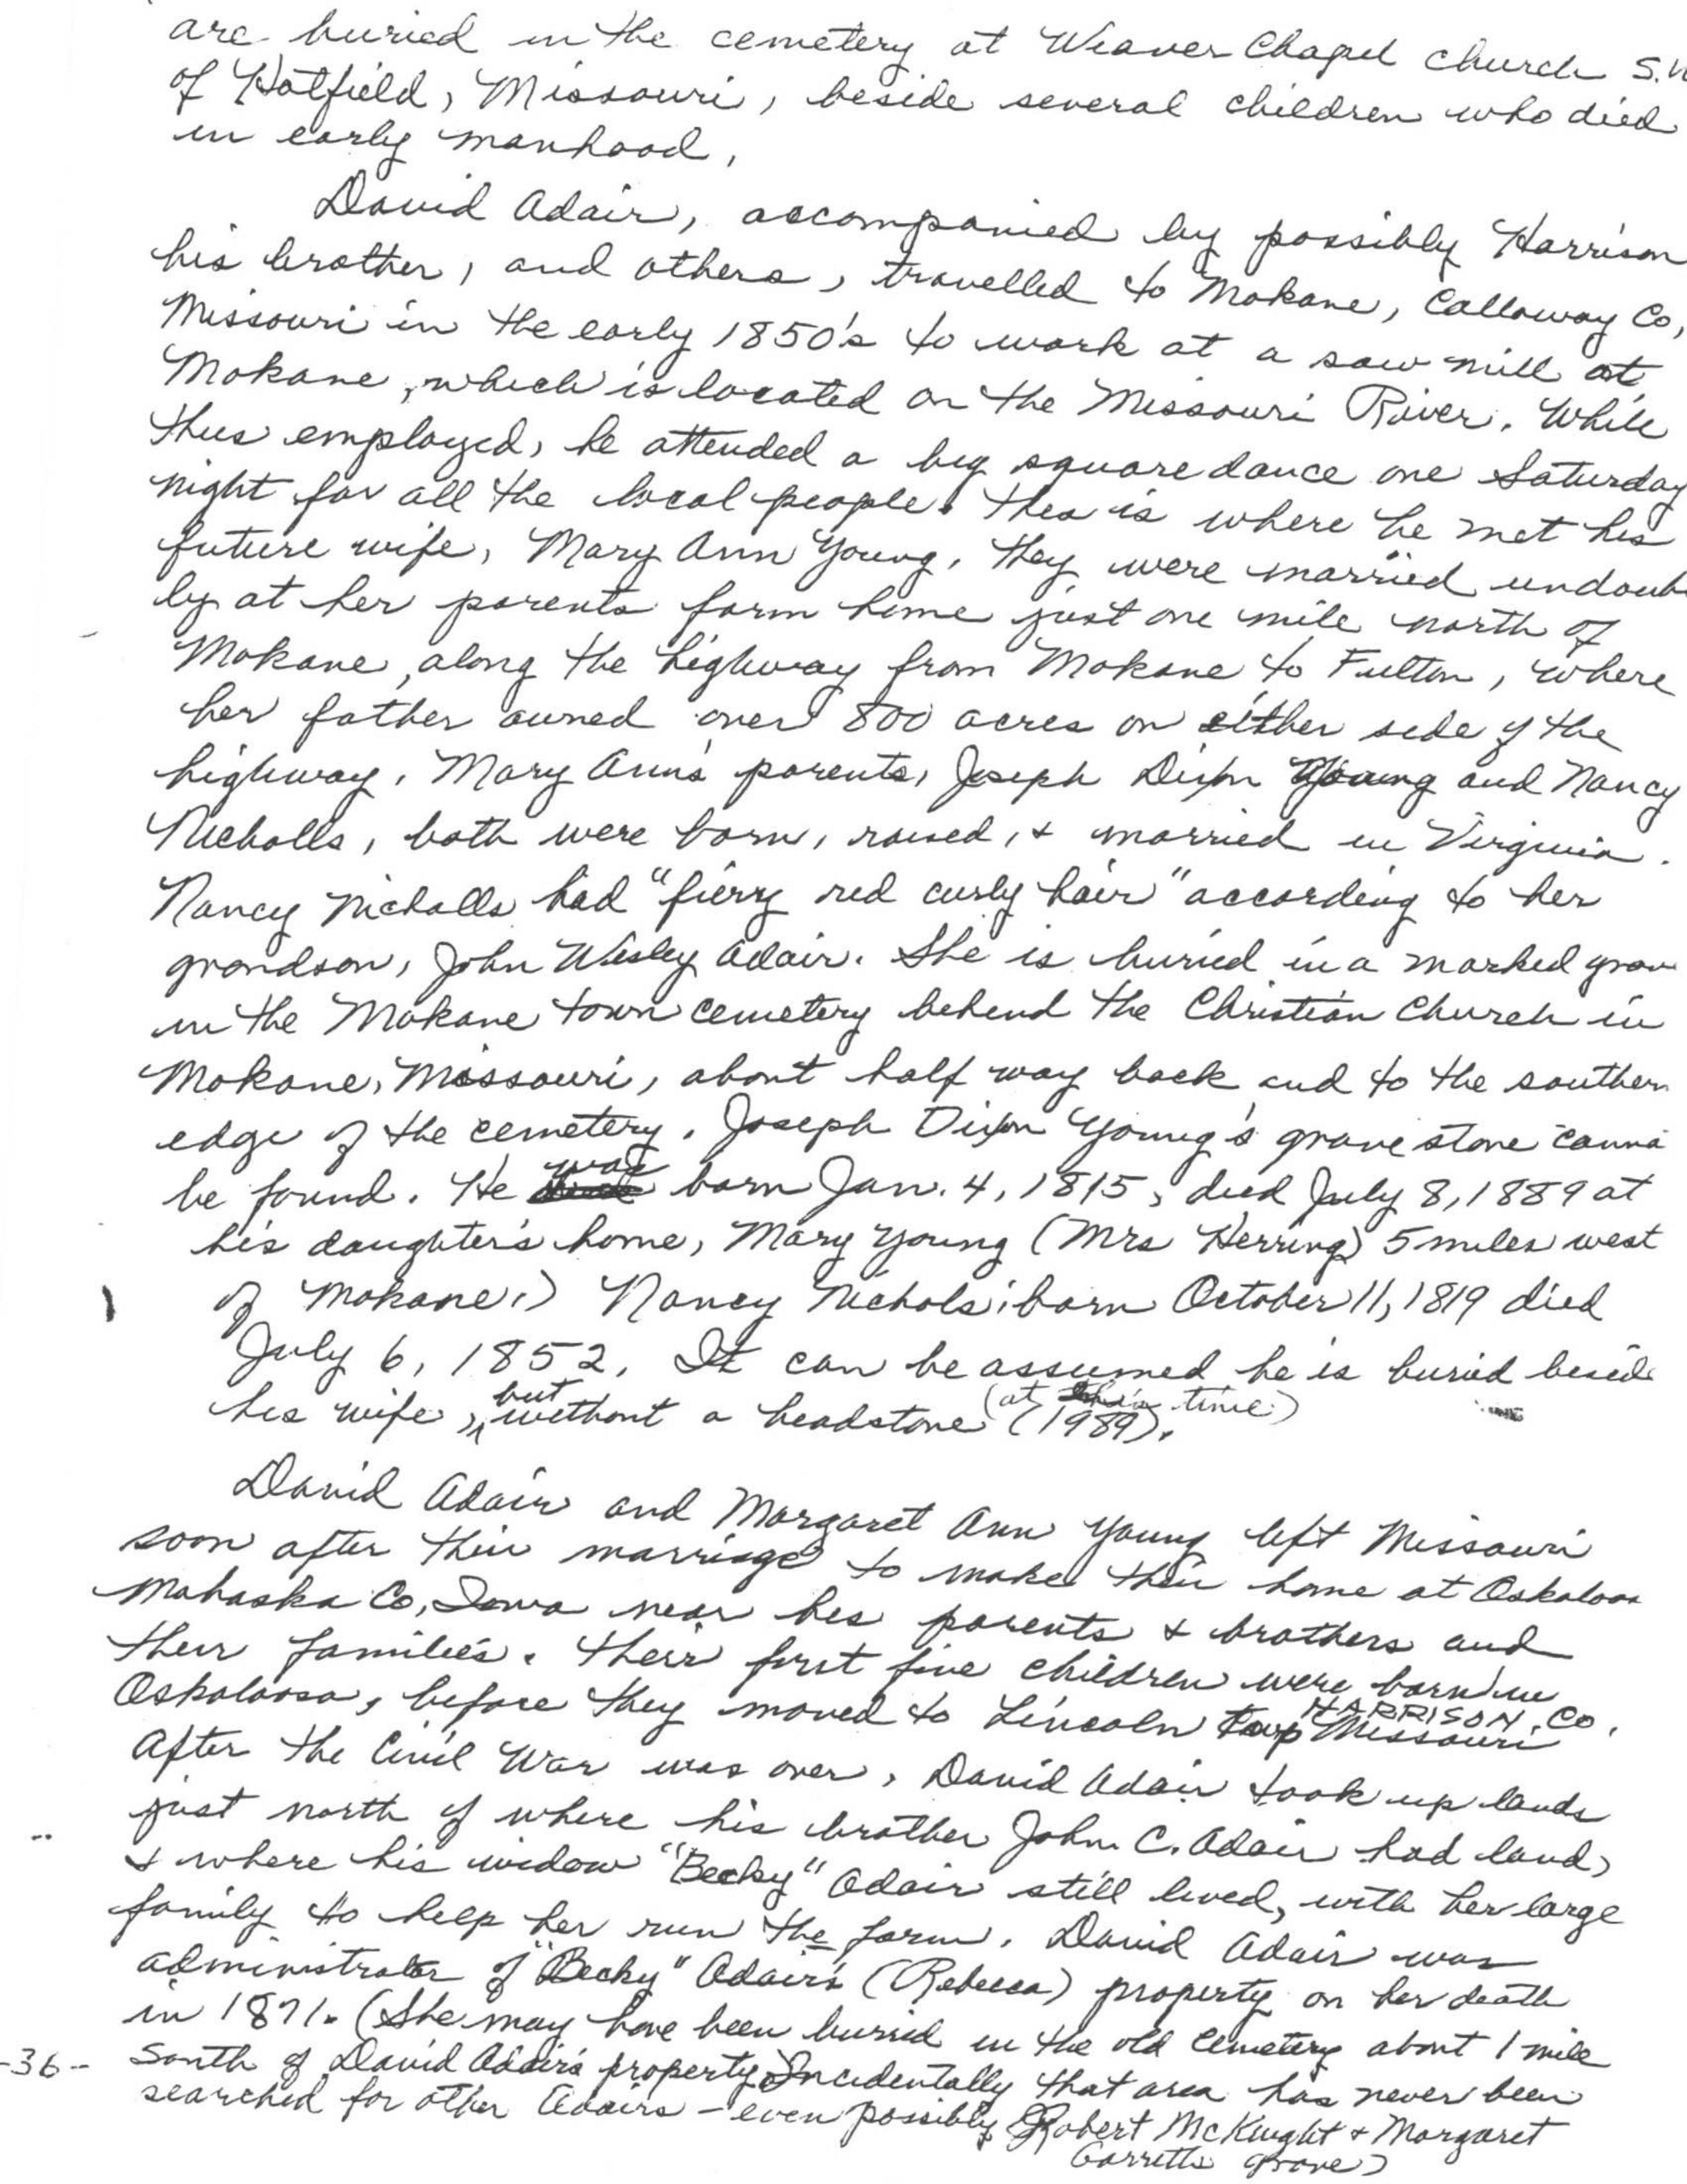 are buried in the cemetery at Weaver Chapel church S.W
of Hatfield, Missouri, beside several children who died
in early manhood.
David Adair, accompanied by possibly Harrison
his brother, and others, travelled to Mokane, Calloway Co,
Missouri in the early 1850's to work at a saw mill at
Mokane, which is located on the Missouri River. While
thus employed, he attended a big square dance one Saturday
night for all the local people. This is where he met his
future wife, Mary Ann Young. They were married undoub
ly at her parents farm home just one mile north of
Mokane, along the highway from Mokane to Fulton, where
her father owned over 800 acres on either side of the
highway. Mary Ann's parents, Joseph Dixon Young and Nancy
Nicholls, both were born, raised, & married in Virginia.
Nancy Nicholls had "fierry red curly hair" according to her
grandson, John Wesley Adair. She is buried in a marked grav
in the Mokane town cemetery behind the Christian Church in
Mokane, Missouri, about half way back and to the southern
edge of the cemetery. Joseph Dixon Young's grave stone canno
be found. He was born Jan. 4, 1815, died July 8, 1889 at
his daughter's home, Mary Young (Mrs Herring) 5 miles west
of Mokane.) Nancy Nichols: born October 11, 1819 died
July 6, 1852. It can be assumed he is buried beside
his wife, but without a headstone (at this time) (1989).
David Adair and Margaret Ann Young left Missouri
soon after their marriage to make their home at Oskaloosa
Mahaska Co, Iowa near his parents & brothers and
their families. Their first five children were born in
Oskaloosa, before they moved to Lincoln twp HARRISON, CO. Missouri
After the Civil War was over, David Adair took up lands
just north of where his brother John C. Adair had land,
& where his widow "Becky" Adair still lived, with her large
family to help her run the farm. David Adair was
administrator of "Becky" Adair's (Rebecca) property on her death
in 1871. (She may have been buried in the old cemetery about 1 mile
-36- South of David Adair's property. Incidentally that area has never been
searched for other Adairs - even possibly Robert McKnight & Margaret
Garretts grave)